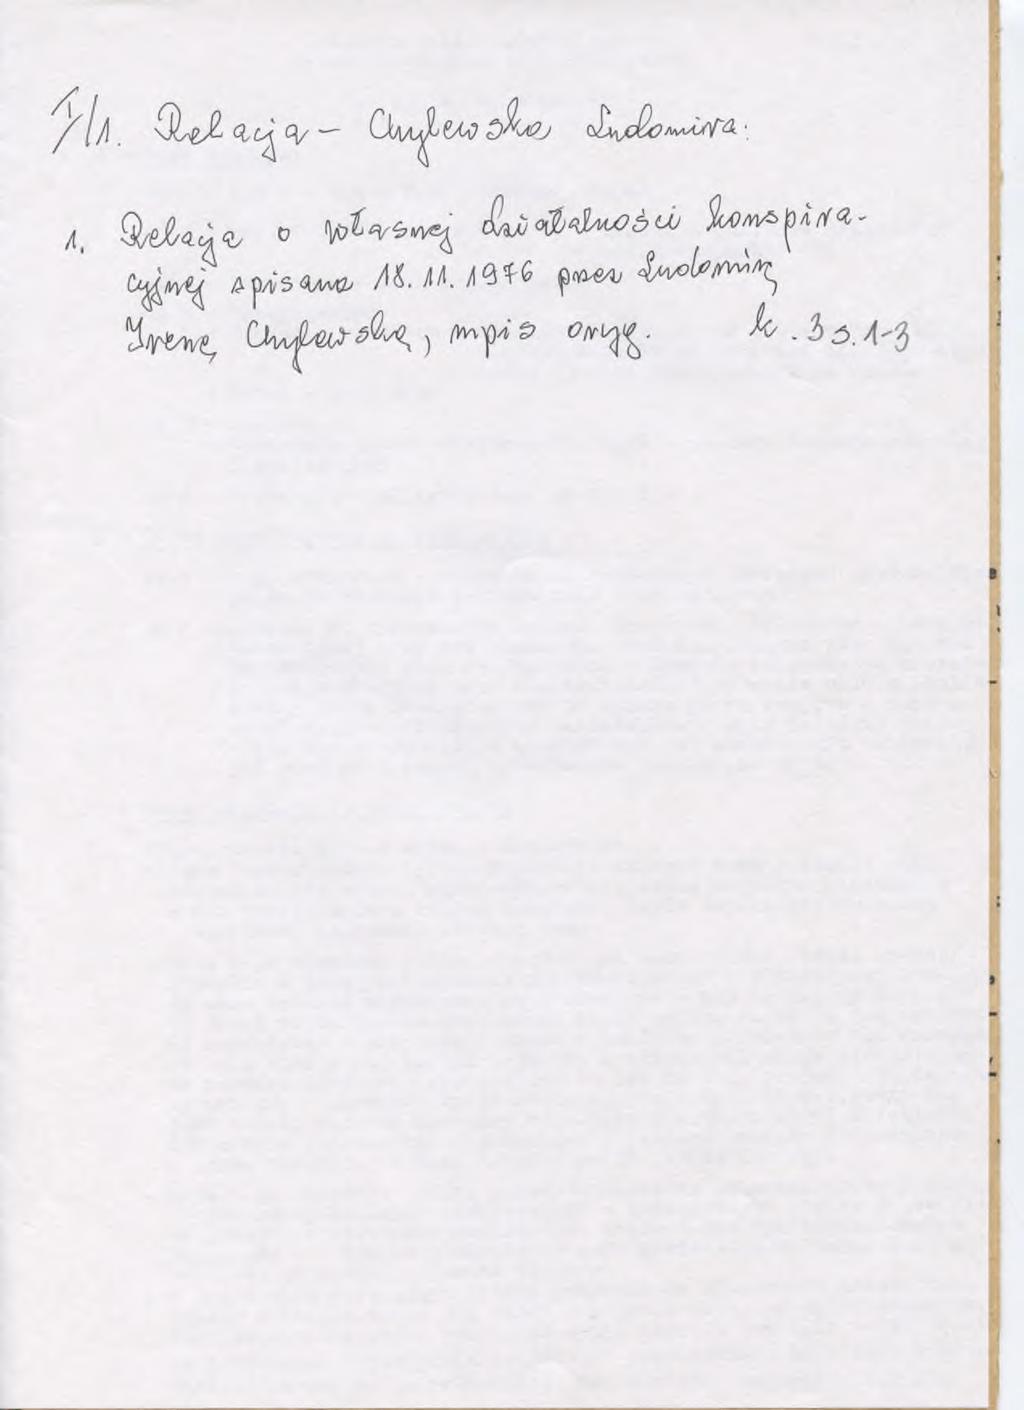 I/1. Relacja - Chylewska Ludomira:
1. Relacja o własnej działalności konspira-
cyjnej spisana 18.11.1976 przez Ludomirę
Irenę Chylewską, mpis oryg. k. 3 s. 1-3